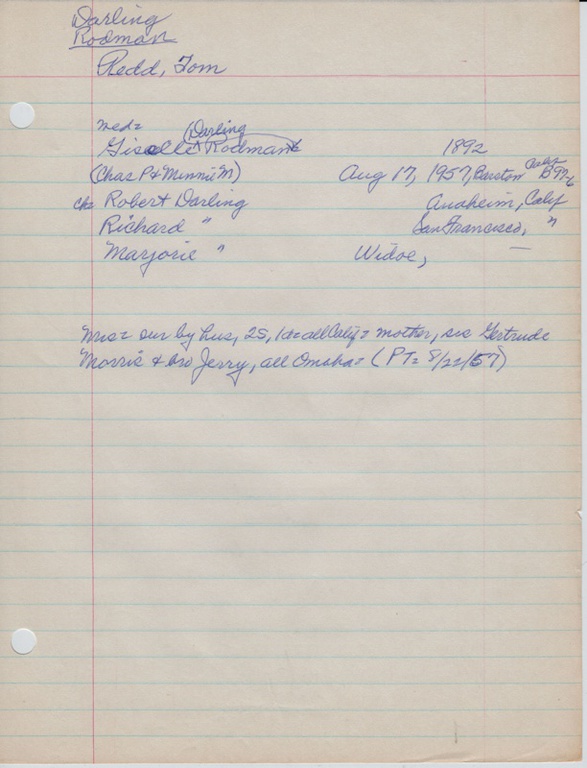 Darling
Rodman
Redd, Tom
med=
(Darling
Giselle Rodman 1892
(Chas P + Minnie M) Aug 17, 1957, Barstow Calif B97-6
ch= Robert Darling Anaheim, Calif
Richard " San Francisco, "
Marjorie " Widoe, —
Mrs= sur by hus, 2S, 1d= all Calif= mother, sis Gertrude
Morris + bro Jerry, all Omaha= (PT= 8/22/57)